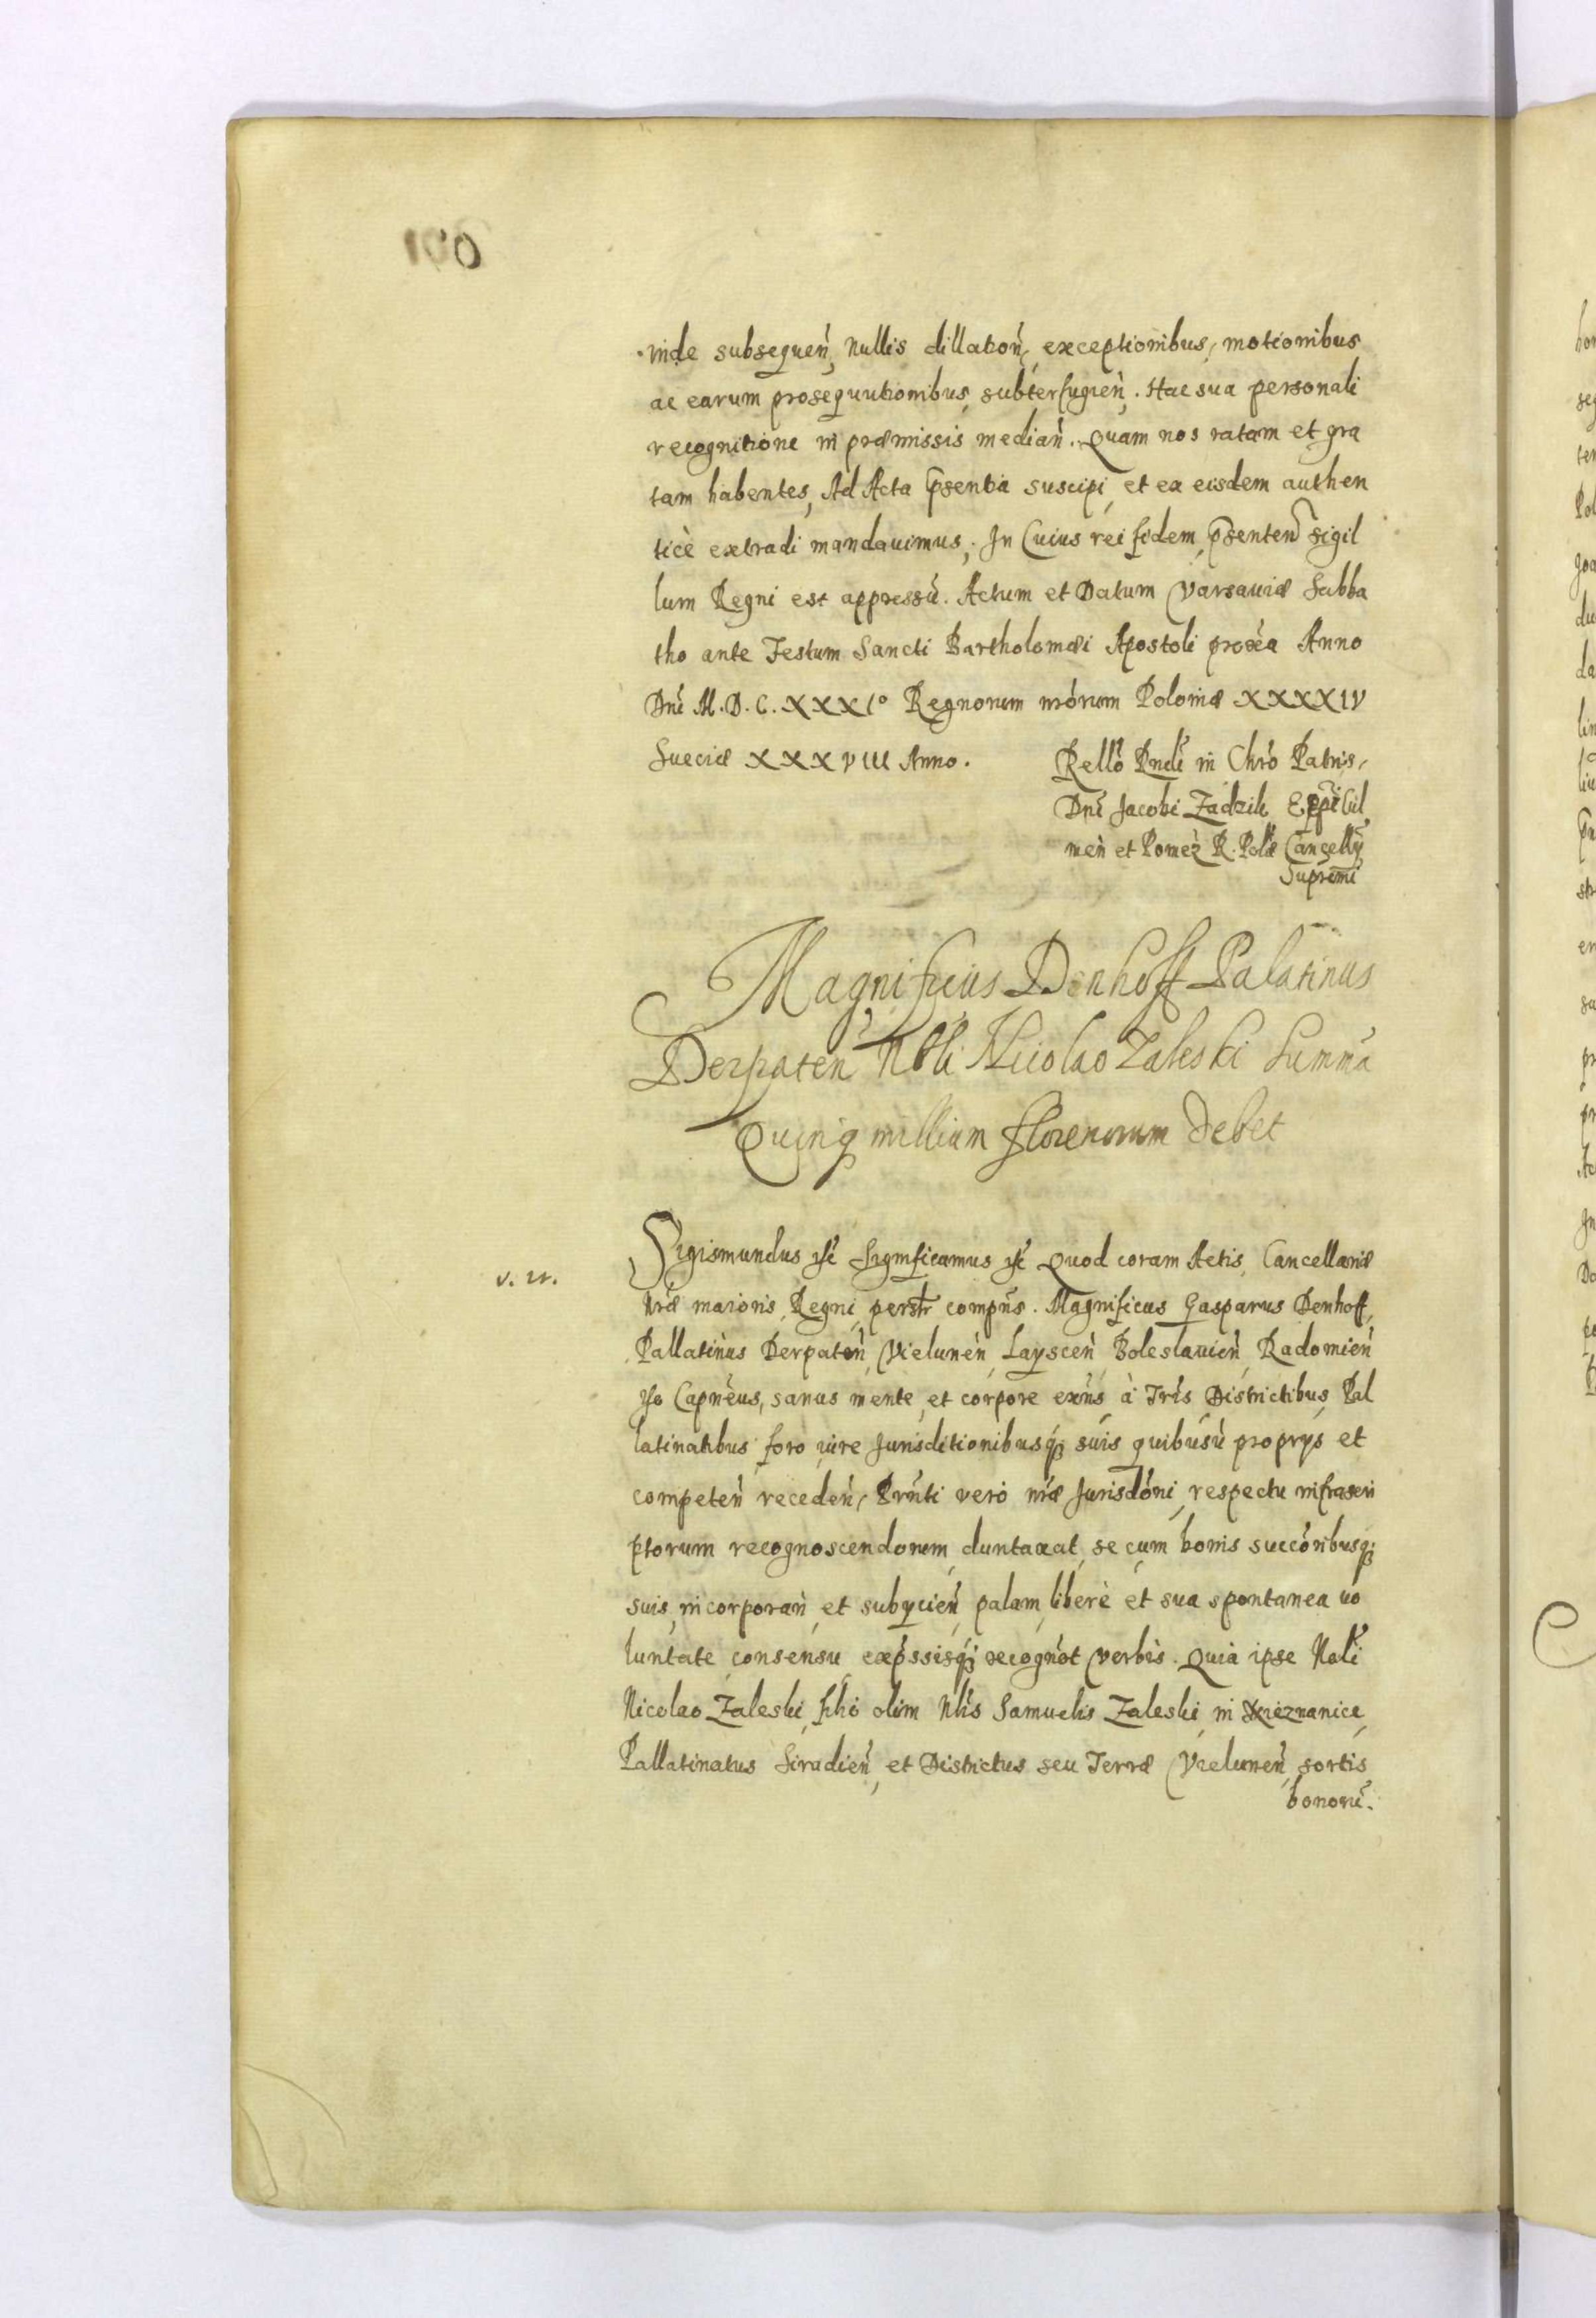 inde subsequeñ, Nullis dillatioñ, exceptionibus, motionibus
ac earum prosequutionibus, subterfugieñ. Hac sua personali
recognitione in præmissis mediañ. Quam nos ratam et gra
tam habentes, Ad Acta p̃sentia suscipi, et ex eisdem authen
ticè extradi mandavimus, In Cuius rei fidem, p̃senteñ sigil
lum Regni est appressũ. Actum et Datum Varsaviæ Sabba
tho ante Festum Sancti Bartholomæi Apostoli proxĩa Anno
Dnĩ M.D.C.XXXIº Regnorum nrõrum Poloniæ XXXXIV
Sueciæ XXXVIII Anno.
Rellõ Rndĩ in Chrõ Patris,
Dnĩ Jacobi Zadzik Eppĩ Cul
meñ et Pomez̃ R. Polæ̃ Cancellỹ
Supremi
Magnificus Denhoff Palatinus
Derpateñ Nbli Nicolao Zaleski Summã
Quinq millium florenorum debet
Sigismundus etc̃ Significamus etc̃ Quod coram Actis, Cancellariæ
Nræ̃ maioris, Regni, perstr̃ compñs. Magnificus Gasparus Denhoff,
Pallatinus Derpateñ, Vieluneñ, Laysceñ, Boleslavieñ, Radomieñ
Capñeus, sanus mente, et corpore exñs, à Trĩs Districtibus, Pal
latinatibus foro iure Jurisditionibusq; suis quibusũ proprys et
competeñ recedeñ, Prñti vero nræ̃ Jurisdõni, respectu infrascri
ptorum recognoscendorum, duntaxat, se cum bonis succõribusq;
suis, incorporañ, et subycieñ, palam, liberè et sua spontanea vo
luntate, consensu exp̃ssisq; recognõt verbis. Quia ipse Nolĩ
Nicolao Zaleski, filio olim Nlĩs Samuelis Zaleski, in
Pallatinatus Siradieñ, et Districtus seu Terræ Vieluneñ, sortis
bonorũ.